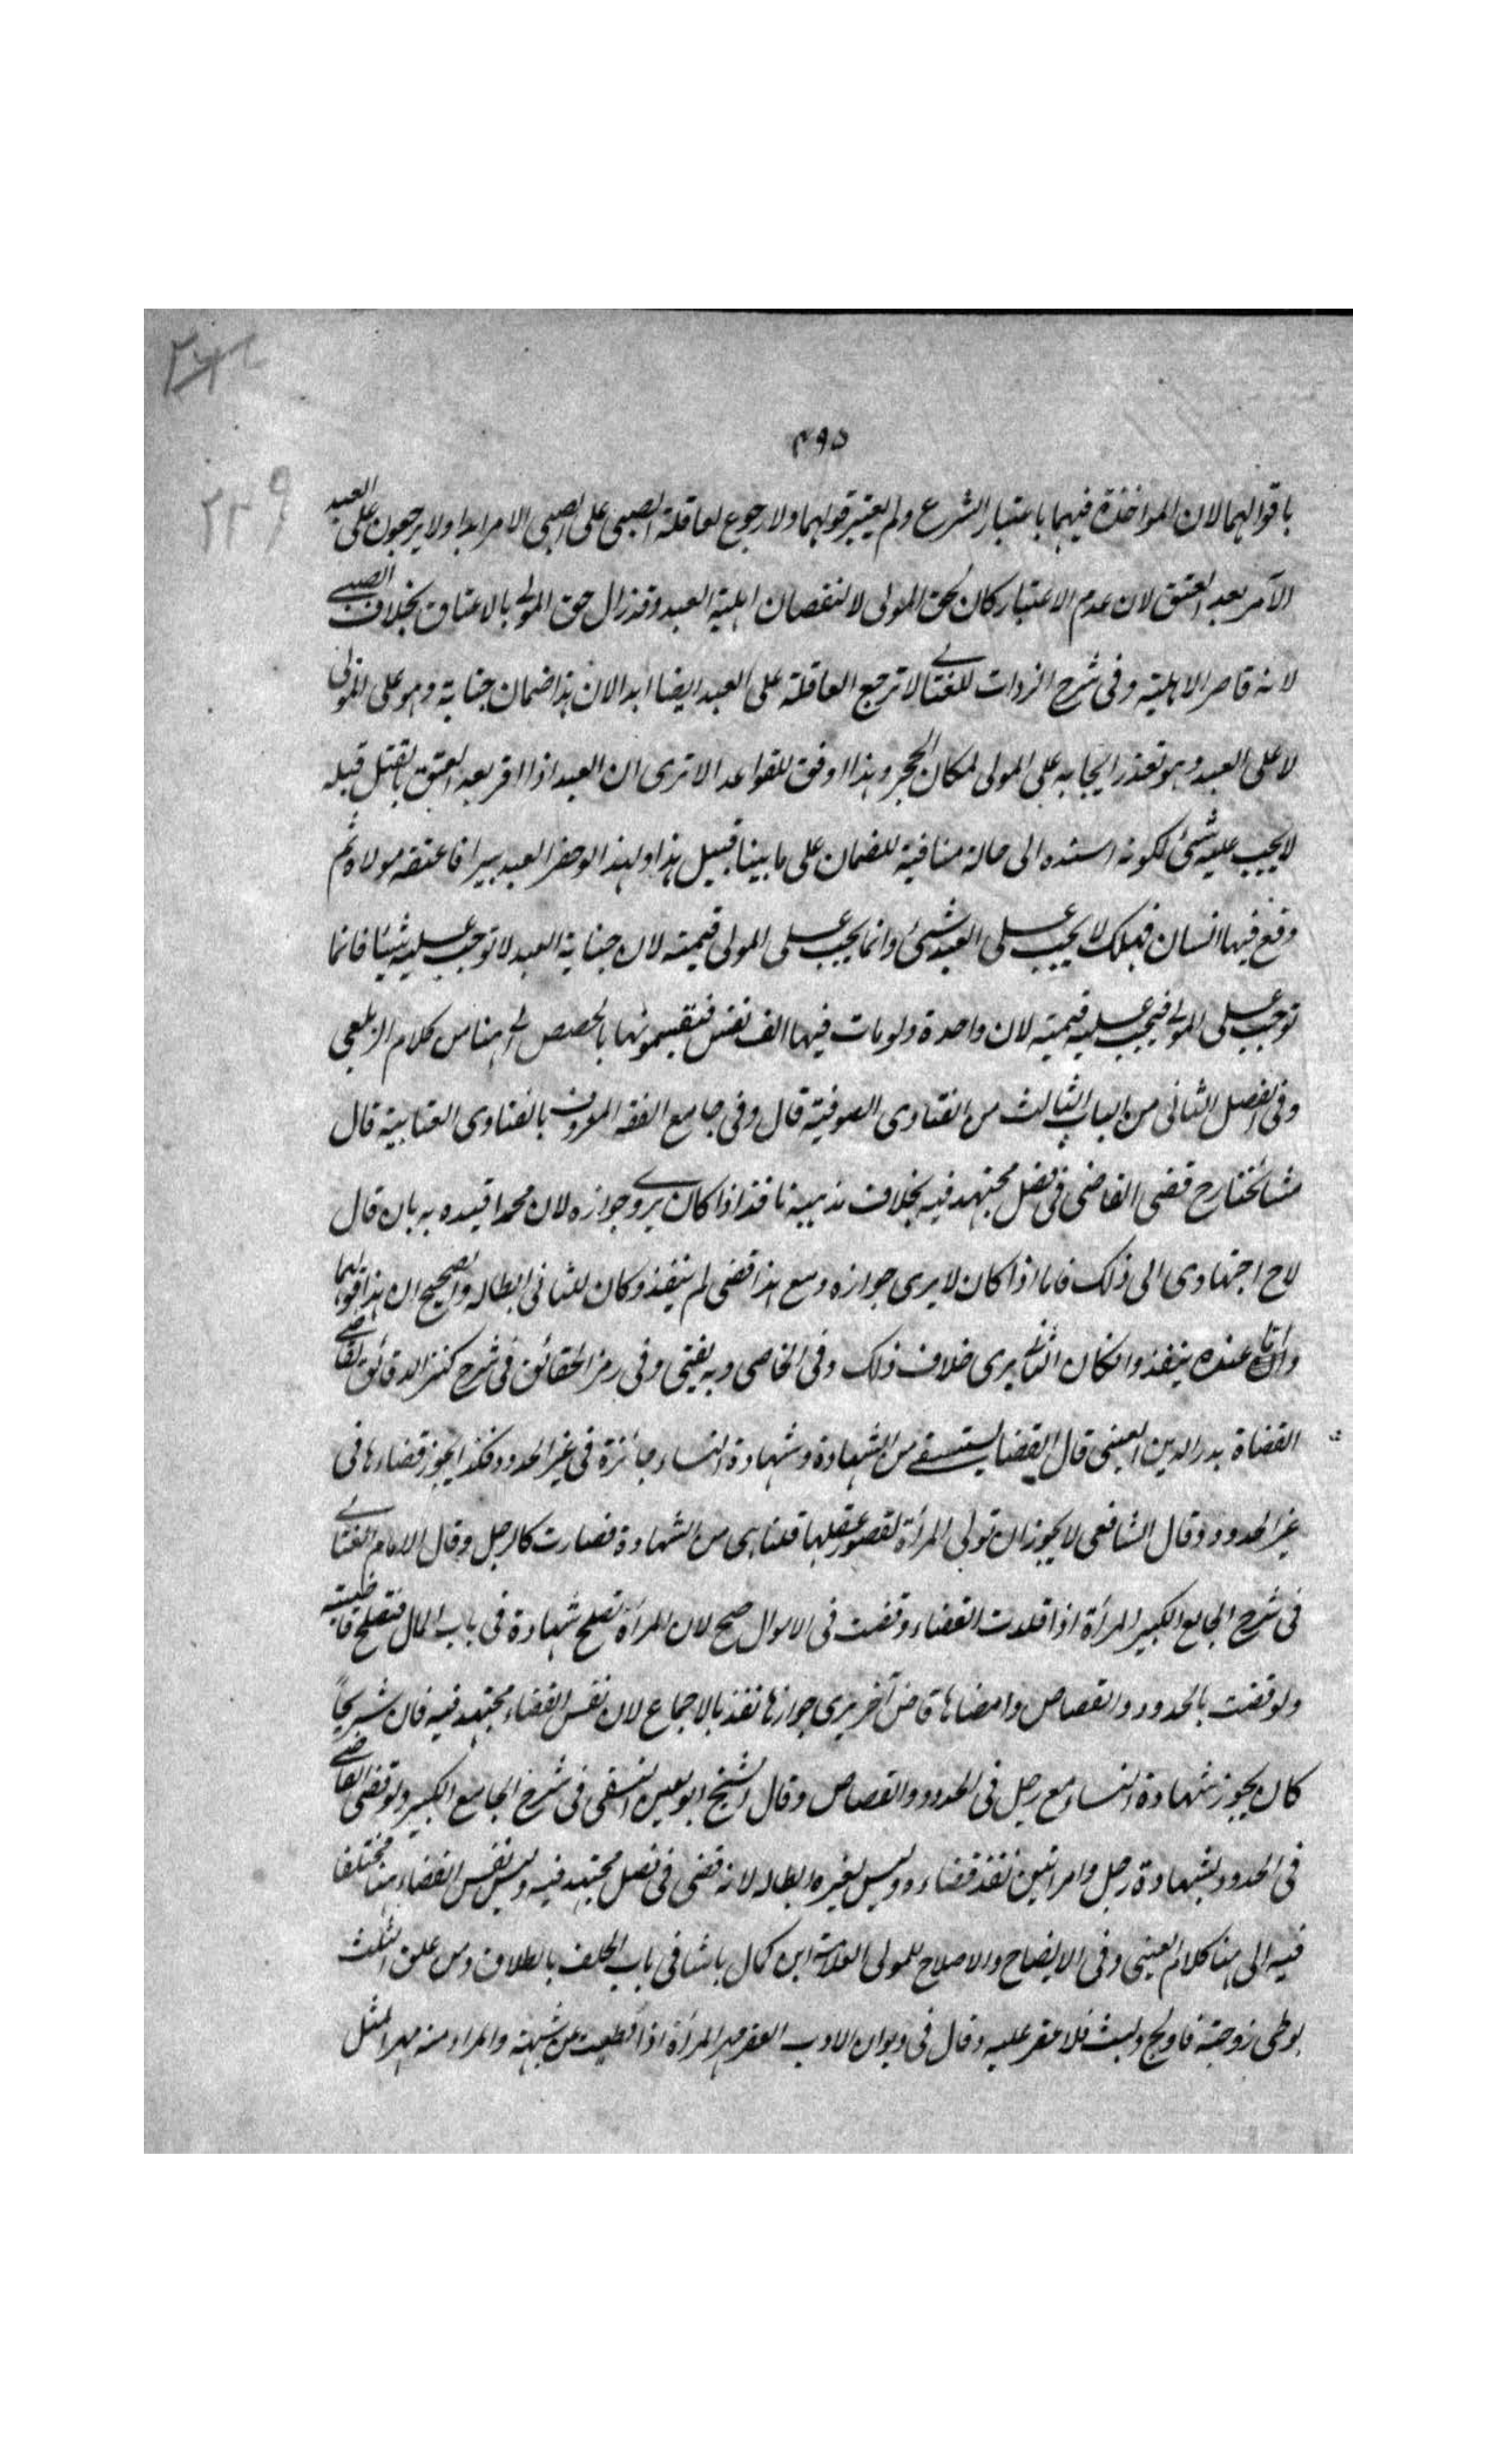 ۴۹۵
۲۲۹
باقوالهما لان المواخذة فيهما باعتبار الشرع ولم يعتبر قولهما ولا رجوع لعاقلة الصبى على الصبى الامر ابدا ولا يرجعون على العبد
الآمر بعد العتق لان عدم الاعتبار كان لحق المولى لا لنقصان اهلية العبد وقد زال حق المولى بالاعتاق بخلاف الصبى
لانه قاصر الاهلية وفى شرح الزيادات للعتابى لا ترجع العاقلة على العبد ايضا ابدا لان هذا ضمان جناية وهو على المولى
لا على العبد وهو تعذر ايجابه على المولى لمكان الحجر وهذا اوفق للقواعد الا ترى ان العبد اذا اقر بعد العتق بالقتل قبله
لا يجب عليه شئ لكونه اسنده الى حالة منافية للضمان على ما بينا قبيل هذا ولهذا لو حفر العبد بيرا فاعتقه مولاه ثم
وقع فيها انسان فهلك لا يجب على العبد شئ وانما يجب على المولى قيمته لان جناية العبد لا توجب عليه شيئا فانما
توجب على المولى فيجب عليه قيمته لان واحدة ولو مات فيها الف نفس فيقتسمونها بالحصص الى هنا من كلام الزيلعى
وفى الفصل الثانى من الباب الثالث من الفتاوى الصوفية قال وفى جامع الفقه المعروف بالفتاوى العتابية قال
مشائخنا رح قضى القاضى فى فصل مجتهد فيه بخلاف مذهبه نافذ اذا كان يرى جوازه لان محمدا قيده به بان قال
لاح اجتهادى الى ذلك فاما اذا كان لا يرى جوازه ومع هذا قضى لم ينفذ وكان للثانى ابطاله والصحيح ان هذا قولهما
واما عنده ينفذ وانكان الثانى يرى خلاف ذلك وفى الخاصى وبه يفتى وفى رمز الحقائق فى شرح كنز الدقائق لقاضى
القضاة بدر الدين العينى قال القضا يستسقى من الشهادة وشهادة النساء جائزة فى غير الحدود فكذا يجوز قضاءها فى
غير الحدود وقال الشافعى لا يجوز ان تولى المرأة لقصور عقلها قلنا هى من الشهادة فصارت كالرجل وقال الامام العتابى
فى شرح الجامع الكبير المرأة اذا قلدت القضاء وقضت فى الاموال صح لان المرأة تصلح شهادة فى باب المال فتصلح قاضية
ولو قضت بالحدود والقصاص وامضاها قاض آخر يرى جوازها نفذ بالاجماع لان نفس القضاء مجتهد فيه فان شريحا
كان يجوز شهادة النساء مع رجل فى الحدود والقصاص وقال الشيخ ابو المعين النسفى فى شرح الجامع الكبير ولو قضى القاضى
فى الحدود بشهادة رجل وامراتين نفذ قضاءه وليس لغيره ابطاله لانه قضى فى فصل مجتهد فيه وليس نفس القضاء هنا مختلفا
فيه الى هنا كلام العينى وفى الايضاح والاصلاح للمولى العلامة ابن كمال باشا فى باب الحلف بالطلاق ومن علق الثلث
بوطى زوجته فاولج ولبث فلا عقر عليه وقال فى ديوان الادب العقر مهر المرأة اذا وطيت عن شبهة والمراد منه مهر المثل